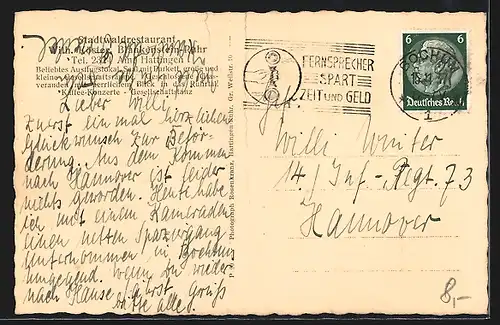 Stadtwaldrestaurant
Wilh. Köster, Blankenstein-Ruhr
Tel. Amt Hattingen
Beliebtes Ausflugslokal, Saal mit Parkett, große und
kleine Gesellschaftszimmer,
veranden mit herrlichem Blick in das Ruhrtal
Kaffee-Konzerte - Gesellschaftstanz
Lieber Willi,
Zuerst einmal herzlichen
Glückwunsch zur Beför-
derung. Aus dem Kommen
nach Hannover ist leider
nichts geworden. Heute habe
ich mit einem Kameraden
einen netten Spaziergang
unternommen in Bochums
Umgegend. Wenn Du wieder
nach Hause fährst, Grüß
bitte alles.
Photograph Rosenkranz, Hattingen-Ruhr, Gr. Weilstr. 10
FERNSPRECHER
SPART
ZEIT UND GELD
BOCHUM
1
6 6
Deutsches Reich
Gefr.
Willi Winter
14./Inf-Rgt. 73
Hannover
8,-